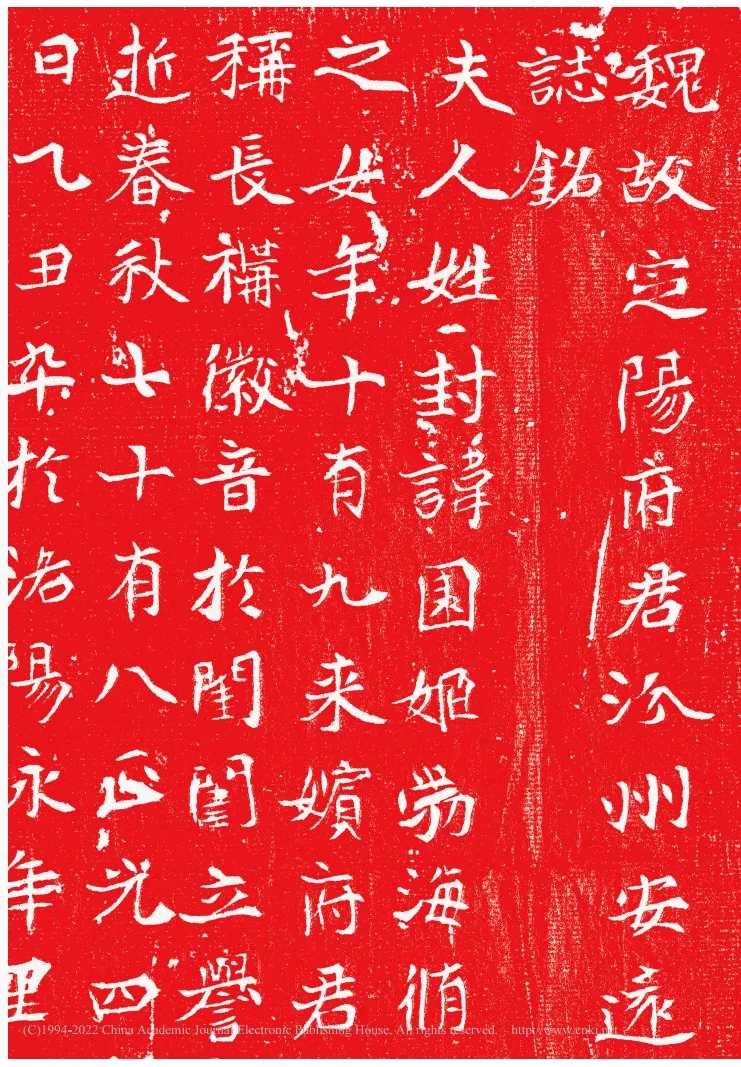 魏故定陽府君汾州安遠
誌銘
夫人姓封諱囯姬勃海脩
之女年十有九来嬪府君
稱長禂徽音於閨閨立譽
逝春秋七十有八正光四
日乙丑卒於洛陽永年里
(C)1994-2022 China Academic Journal Electronic Publishing House. All rights reserved. http://www.cnki.net